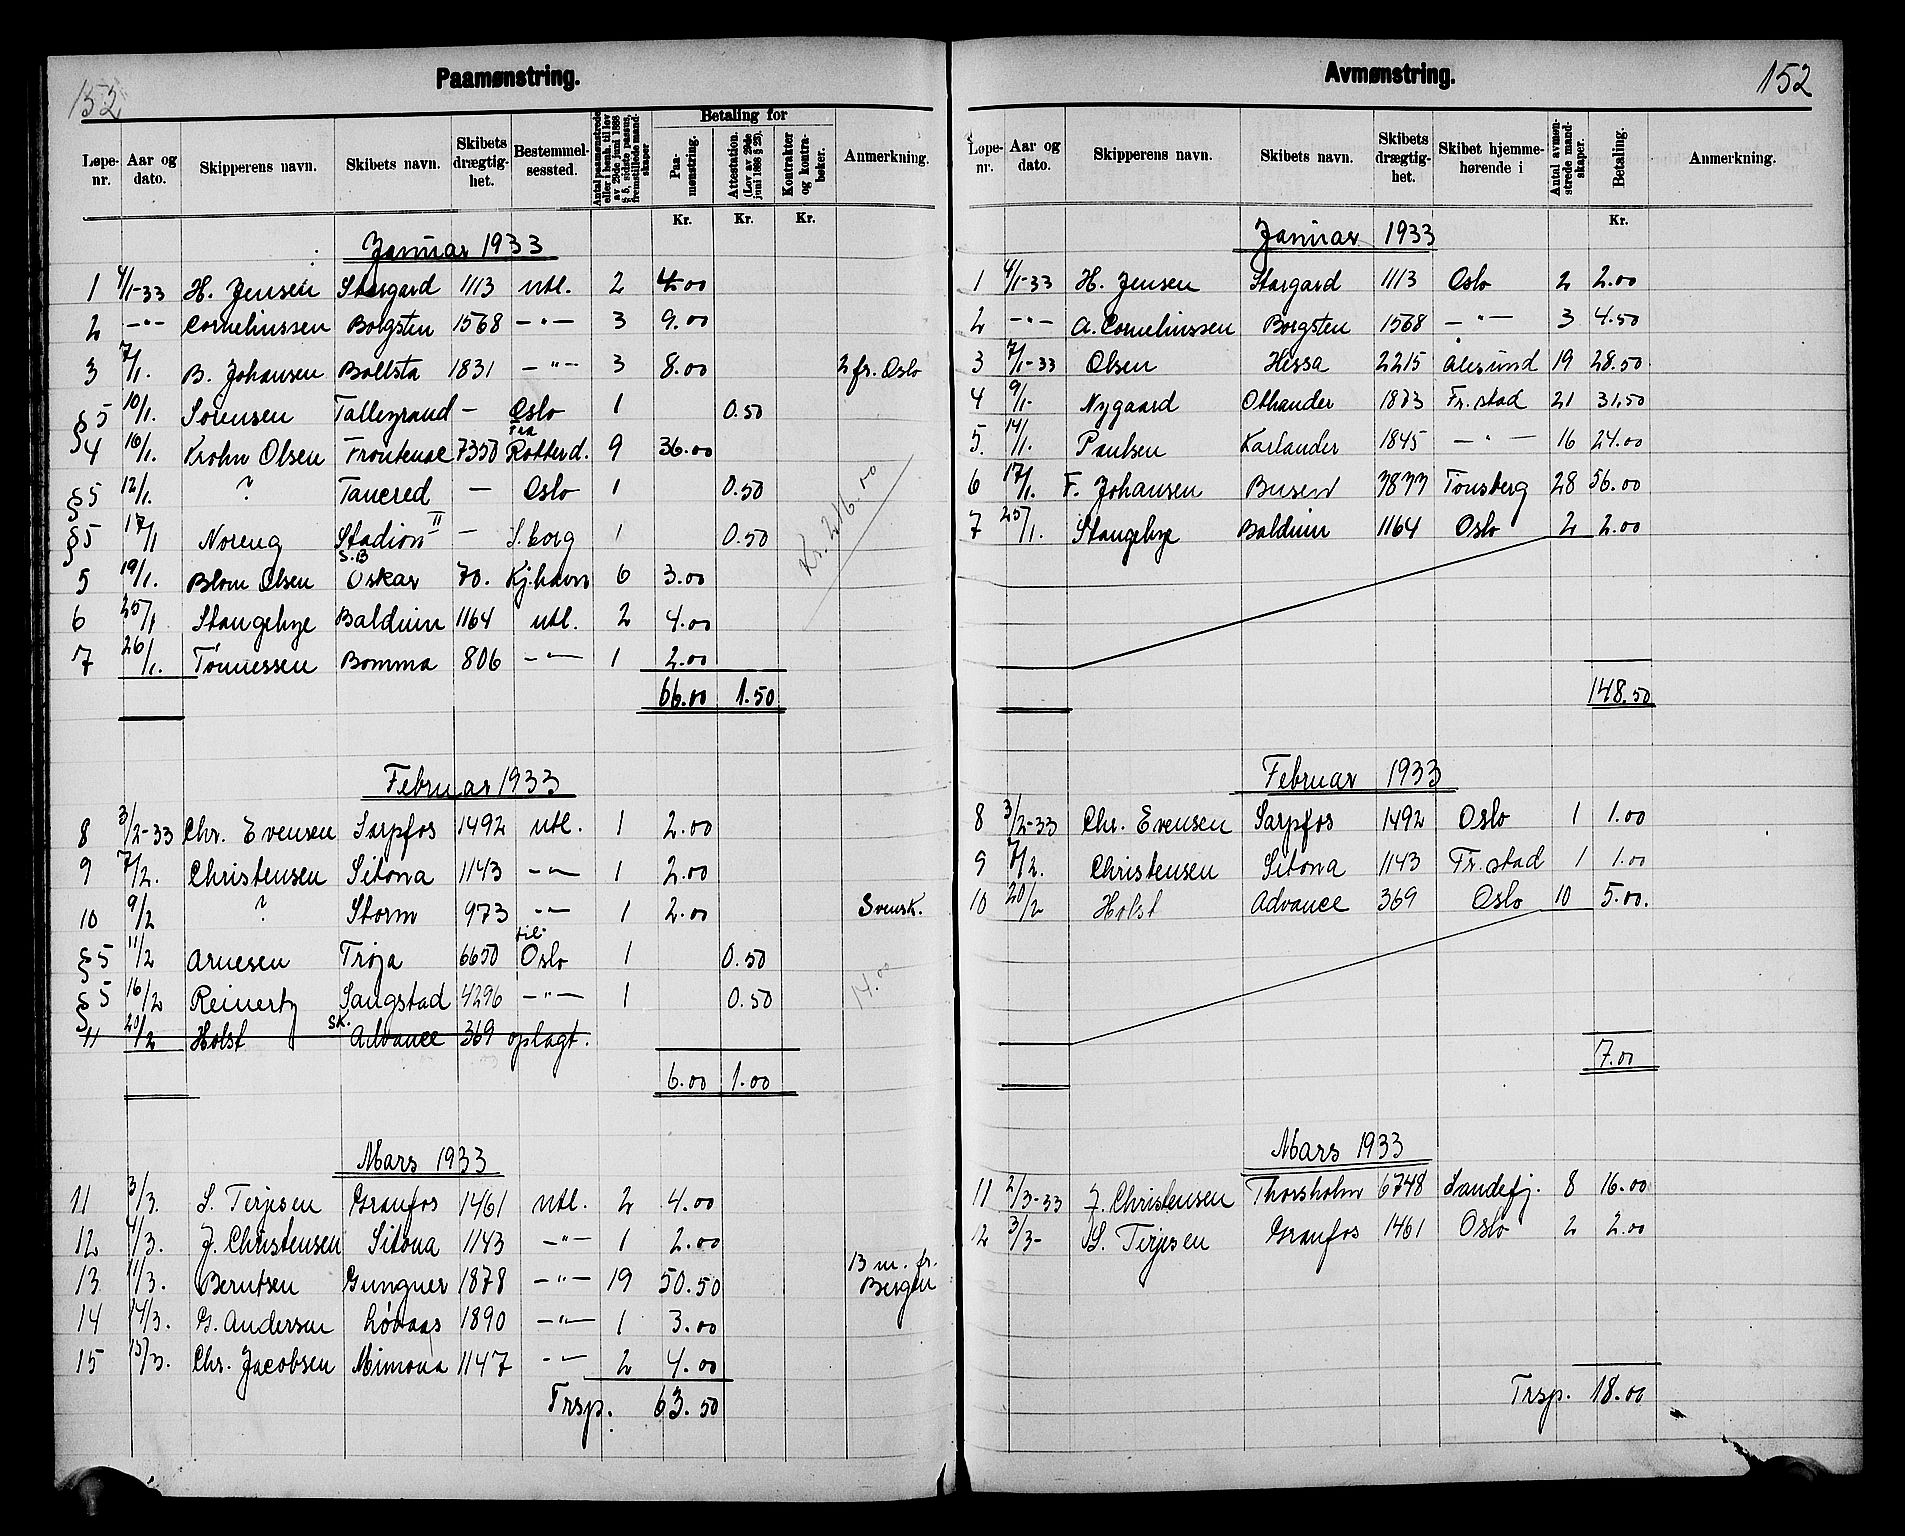 152
Paamønstring.
Løpe-nr. Aar og dato. Skipperens navn. Skibets navn. Skibets drægtig-het. Bestemmel-sessted. Antal paamønstrede eller i henh. til lov av 29de juni 1888 § 5, sidste passus, fremstillede mand-skaper Betaling for Paa-mønstring. Attestation. (Lov av 29de juni 1888 § 23). Kontrakter og kontra-bøker. Anmerkning.
Kr. Kr. Kr.
Januar 1933
1 4/1-33 H. Jensen Stargard 1113 utl. 2 4.00
2 -"- Corneliussen Borgsten 1568 -"- 3 9.00
3 7/1. B. Johansen Bollsta 1831 -"- 3 8.00 2 fr. Oslo
§5 10/1. Sørensen Talleyrand - Oslo 1 0.50
4 10/1. Krohn Olsen Frontenac 7350 Rotterd. 9 36.00
§5 12/1. ? Tancred - Oslo 1 0.50
§5 17/1 Noreng Stadion II - S.borg 1 0.50
5 19/1. Blom Olsen S.B Oskar 70. Kj.havn 6 3.00
6 25/1 Stangebye Balduin 1164 utl. 2 4.00
7 26/1. Tønnessen Bomma 806 -"- 1 2.00
66.00 1.50
Kr. 216.00
Februar 1933
8 3/2-33 Chr. Evensen Sarpfos 1492 utl. 1 2.00
9 7/2. Christensen Sitona 1143 -"- 1 2.00
10 9/2 ? Storm 973 -"- 1 2.00 Svensk.
§5 11/2 Arnesen Troja 6650 til Oslo 1 0.50
§5 16/2 Reinertz Sangstad 4296 -"- 1 0.50 14.00
11 20/2 Holst sk. Advance 369 oplagt.
6.00 1.00
Mars 1933
11 3/3. S. Terjesen Granfos 1461 utl. 2 4.00
12 4/3. J. Christensen Sitona 1143 -"- 1 2.00
13 11/3. Berntsen Gungner 1878 -"- 19 50.50 13 m. fr. Bergen
14 14/3. G. Andersen Løvaas 1890 -"- 1 3.00
15 15/3. Chr. Jacobsen Mimona 1147 -"- 2 4.00
Trsp. 63.50
Avmønstring.
152
Løpe-nr. Aar og dato. Skipperens navn. Skibets navn. Skibets drægtig-het. Skibet hjemme-hørende i Antal avmøn-strede mand-skaper. Betaling. Anmerkning.
Kr.
Januar 1933
1 4/1-33 H. Jensen Stargard 1113 Oslo 2 2.00
2 -"- A. Corneliussen Borgsten 1568 -"- 3 4.50
3 7/1-33 Olsen Hessa 2215 Ålesund 19 28.50
4 9/1- Nygaard Othander 1873 Fr.stad 21 31.50
5. 14/1. Paulsen Karlander 1845 -"- 16 24.00
6 17/1. F. Johansen Busen 3833 Tønsberg 28 56.00
7 25/1. Stangebye Balduin 1164 Oslo 2 2.00
148.50
Februar 1933
8 3/2-33 Chr. Evensen Sarpfos 1492 Oslo 1 1.00
9 7/2. Christensen Sitona 1143 Fr.stad 1 1.00
10 20/2 Holst Advance 369 Oslo 10 5.00.
7.00
Mars 1933
11 2/3-33 J. Christensen Thorsholm 6748 Sandefj. 8 16.00
12 3/3- S. Terjesen Granfos 1461 Oslo 2 2.00
Trsp. 18.00